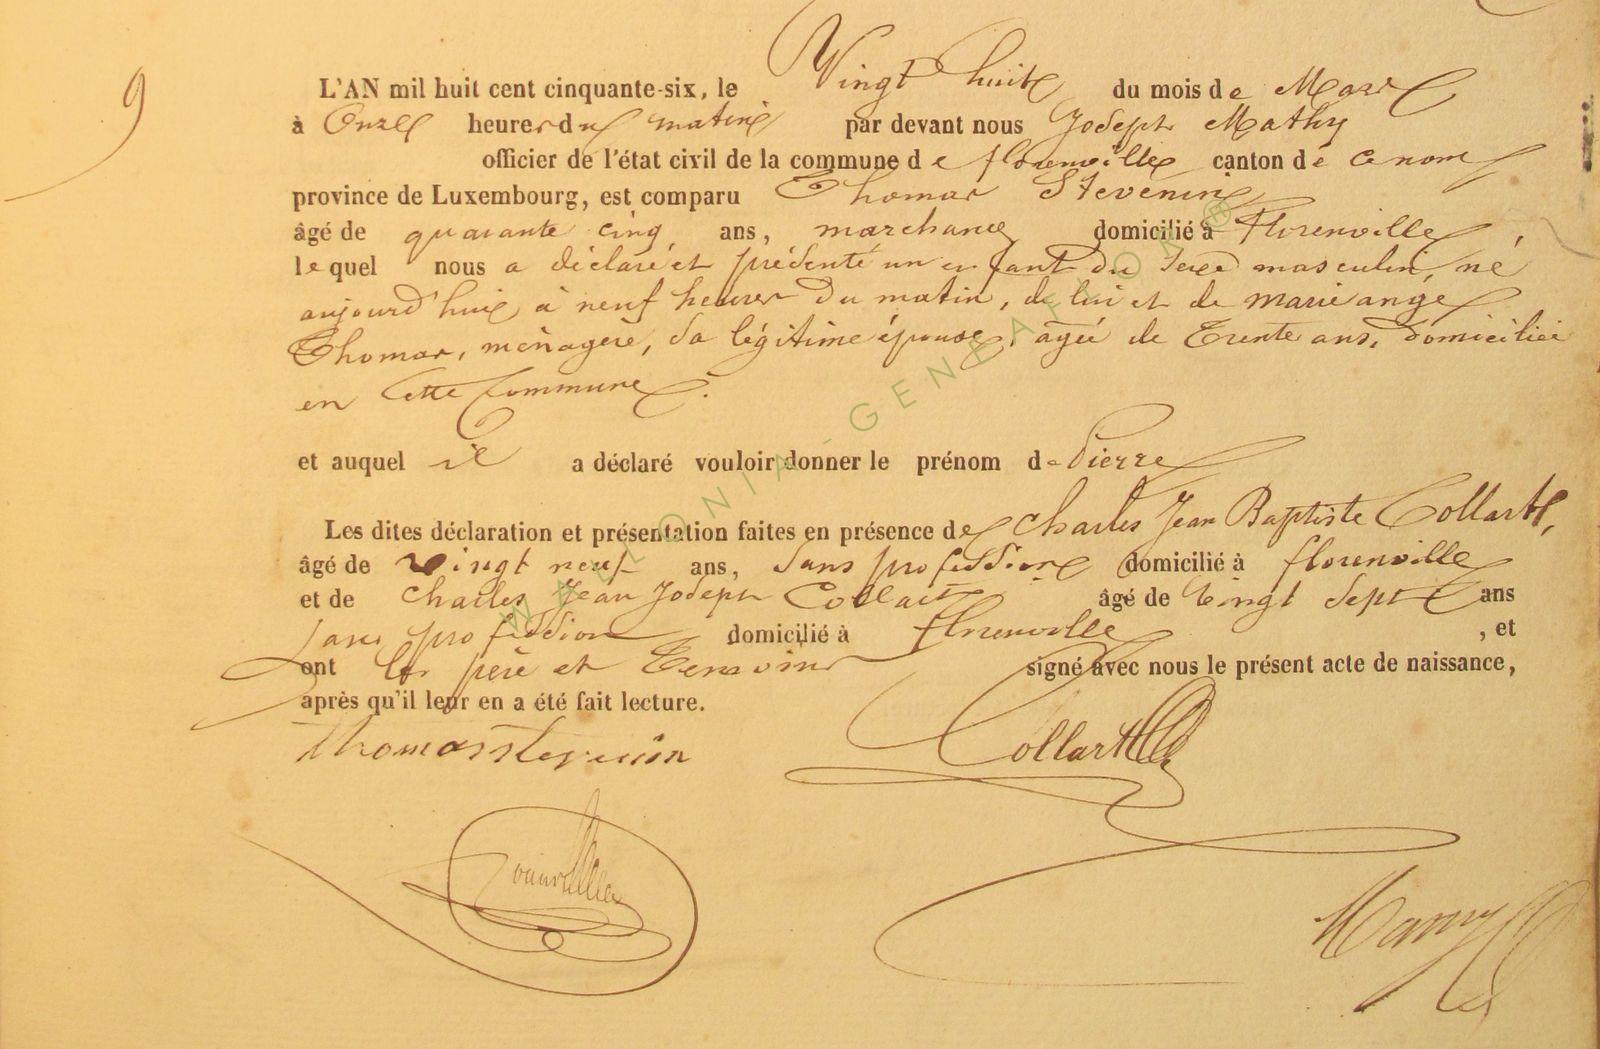 9
L'AN mil huit cent cinquante-six, le Vingt huit du mois de Mars
à Onze heures du matin par devant nous Joseph Mathy
officier de l'état civil de la commune de florenville canton de ce nom
province de Luxembourg, est comparu Thomas Stevenin
âgé de quarante cinq ans, marchand domicilié à Florenville,
lequel nous a déclaré et présenté un enfant du sexe masculin, né
aujourd'hui à neuf heures du matin, de lui et de marie ange
Thomas, ménagère, sa légitime épouse, agée de Trente ans, domiciliée
en cette Commune.
et auquel il a déclaré vouloir donner le prénom de Pierre
Les dites déclaration et présentation faites en présence de Charles Jean Baptiste Collart,
âgé de vingt neuf ans, sans profession domicilié à florenville
et de Charles Jean Joseph Collart âgé de Vingt Sept ans
sans profession domicilié à florenville, et
ont les père et Temoins signé avec nous le présent acte de naissance,
après qu'il leur en a été fait lecture.
thomas stevenin Collart
WALLONIA-GENEAFOR®